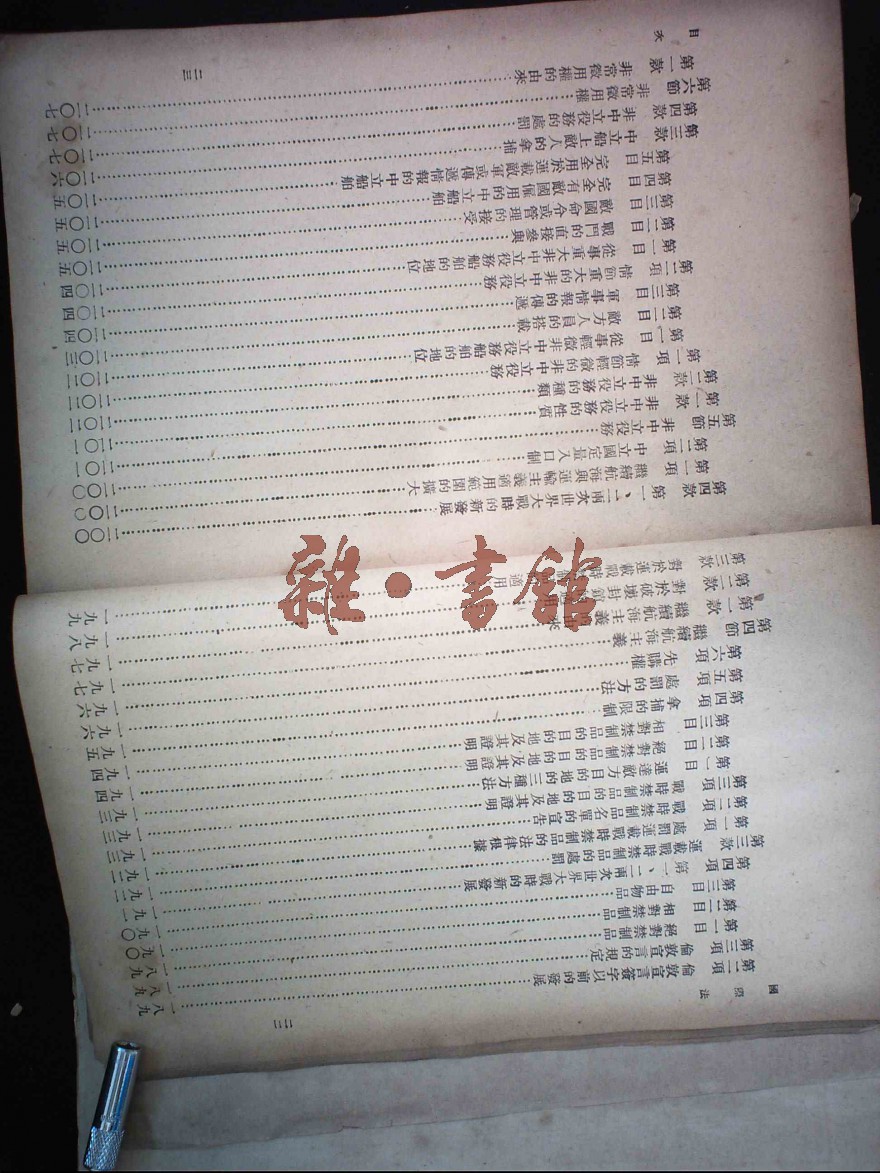 國際法 二二
第二項 倫敦宣言簽字以前的發展 一八九
第三項 倫敦宣言的規定 一八九
第一目 絕對禁制品 一九〇
第二目 相對禁制品
第三目 自由物品
第四項 第一、二兩次世界大戰時的新發展
第三款 運載戰時禁制品的處罰
第一項 處罰運載戰時禁制品的法律根據
第二項 戰時禁制品名單的宣告
第三項 戰時禁制品的目的地及其證明
第一目 運達敵方目的地的三種方法
第二目 絕對禁制品的目的地及其證明
第三目 相對禁制品的目的地及其證明
第四項 拿捕的限制
第五項 處罰的方法
第六項 先購權
第四節 繼續航海主義
第一款 繼續航海主義的由來
第二款 對於破壞封鎖適用
第三款 對於運載戰時
目次 二三
第四款 第一、二兩次世界大戰時的新發展 二〇〇
第一項 繼續航海與運輸主義適用範圍的擴大 二〇〇
第二項 中立國定量入口制 二〇一
第五節 非中立役務 二〇一
第一款 非中立役務的性質 二〇二
第二款 非中立役務的種類 二〇二
第一項 情節輕微的非中立役務
第一目 從事輕微非中立役務船舶的地位
第二目 敵方人員的搭載
第三目 軍事情報的傳遞
第二項 情節重大的非中立役務
第一目 從事重大非中立役務船舶的地位
第二目 戰鬥的直接參與
第三目 敵國命令或管理的接受
第四目 完全有敵國僱用的中立船舶
第五目 完全用於運載敵軍或傳遞情報的中立船舶
第三款 中立船上敵人的拿捕
第四款 非中立役務的處罰
第六節 非常徵用權
第一款 非常徵用權的由來
雜·書館